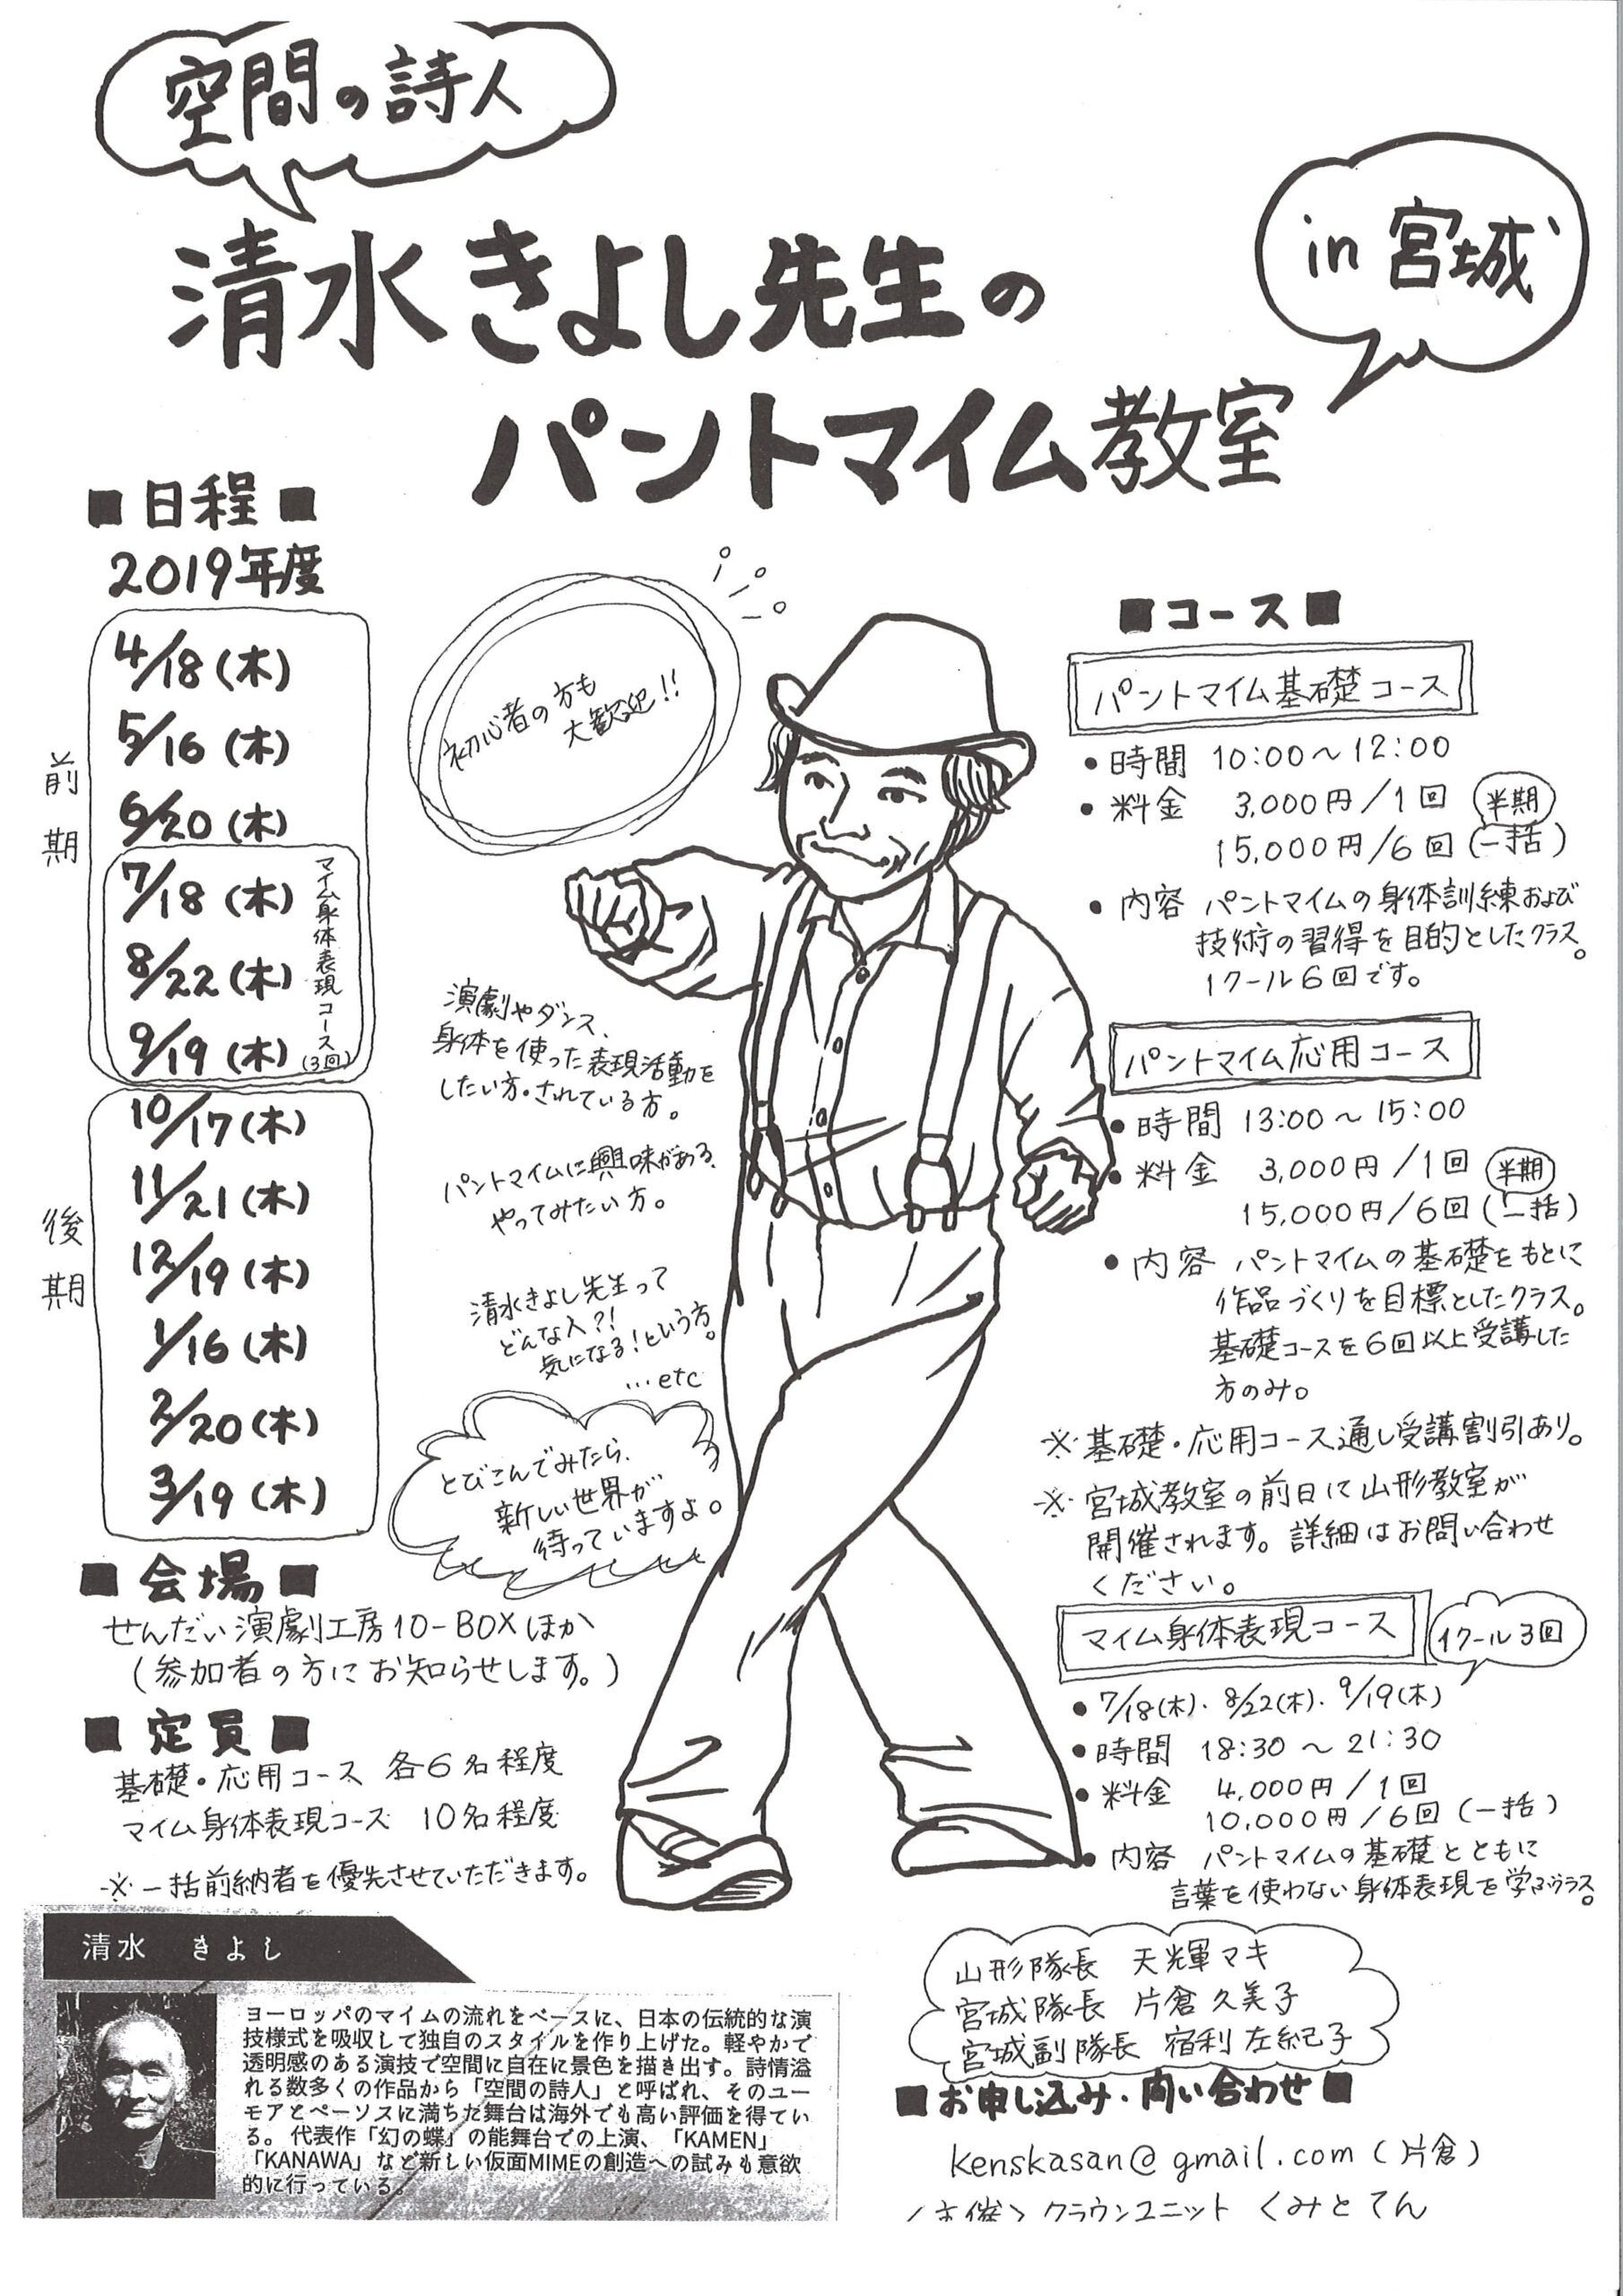 空間の詩人
清水きよし先生の
パントマイム教室
in 宮城
■日程■
2019年度
前期
4/18(木)
5/16(木)
6/20(木)
7/18(木)
8/22(木)
9/19(木)
マイム身体表現コース(3回)
後期
10/17(木)
11/21(木)
12/19(木)
1/16(木)
2/20(木)
3/19(木)
■会場■
せんだい演劇工房10-BOXほか
(参加者の方にお知らせします。)
■定員■
基礎・応用コース 各6名程度
マイム身体表現コース 10名程度
※一括前納者を優先させていただきます。
初心者の方も
大歓迎!!
演劇やダンス、
身体を使った表現活動を
したい方。されている方。
パントマイムに興味がある、
やってみたい方。
清水きよし先生って
どんな人?!
気になる!という方。
…etc
とびこんでみたら、
新しい世界が
待っていますよ。
■コース■
パントマイム基礎コース
●時間 10:00~12:00
●料金 3,000円/1回 半期
15,000円/6回(一括)
●内容 パントマイムの身体訓練および
技術の習得を目的としたクラス。
1クール6回です。
パントマイム応用コース
●時間 13:00~15:00
●料金 3,000円/1回 半期
15,000円/6回(一括)
●内容 パントマイムの基礎をもとに
作品づくりを目標としたクラス。
基礎コースを6回以上受講した
方のみ。
※基礎・応用コース通し受講割引あり。
※宮城教室の前日に山形教室が
開催されます。詳細はお問い合わせ
ください。
マイム身体表現コース
1クール3回
●7/18(木)・8/22(木)・9/19(木)
●時間 18:30~21:30
●料金 4,000円/1回
10,000円/6回(一括)
●内容 パントマイムの基礎とともに
言葉を使わない身体表現を学ぶクラス。
清水 きよし
ヨーロッパのマイムの流れをベースに、日本の伝統的な演
技様式を吸収して独自のスタイルを作り上げた。軽やかで
透明感のある演技で空間に自在に景色を描き出す。詩情溢
れる数多くの作品から「空間の詩人」と呼ばれ、そのユー
モアとペーソスに満ちた舞台は海外でも高い評価を得てい
る。代表作「幻の蝶」の能舞台での上演、「KAMEN」
「KANAWA」など新しい仮面MIMEの創造への試みも意欲
的に行っている。
山形隊長 天輝マキ
宮城隊長 片倉久美子
宮城副隊長 宿利左紀子
■お申し込み・問い合わせ■
kenskasan@gmail.com(片倉)
<主催>クラウンユニット くみとてん